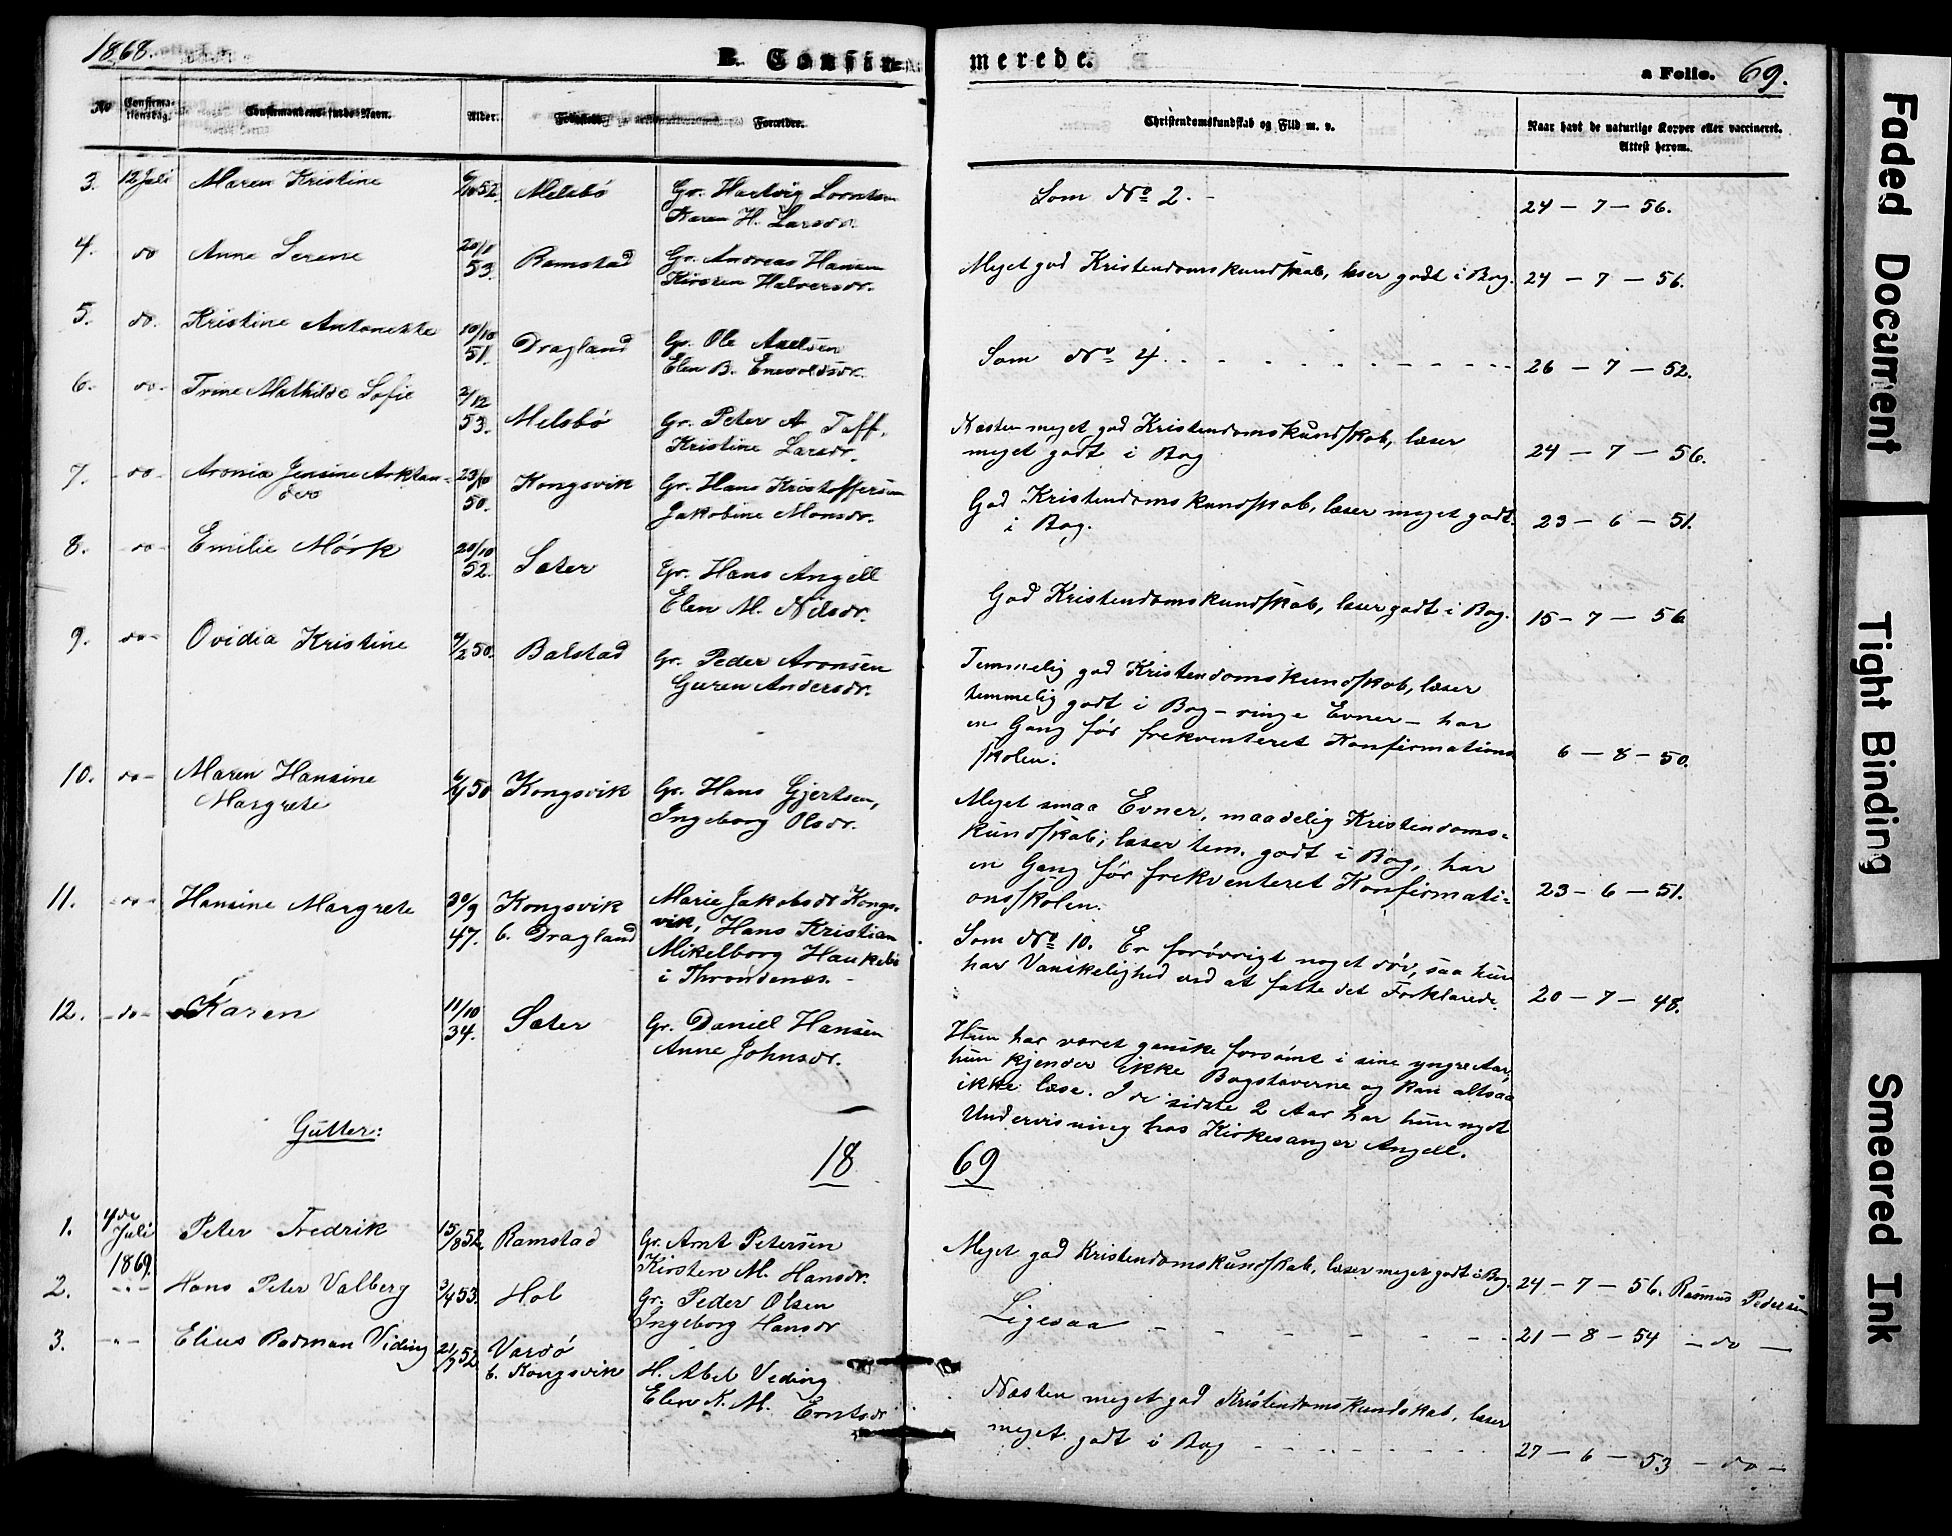 1868.
B. Confirmerede.
a Folio. 69.
No Confirmationsdag. Confirmandens fulde Navn. Alder. Fødested. Forældre. Christendomskundskab og Flid m. v. Naar havt de naturlige Kopper eller vaccineret. Attest herom.
3. 12 Juli Maren Kristine 6/10 52. Melsbö Gr. Hartvig Lorntsen
Karen H. Larsdr.
Som No 2. - 24 - 7 - 56.
4. do Anne Serene 20/11 53. Ramstad Gr. Andreas Hansen
Kirsten Halvorsdr.
Meget god Kristendomskundskab, læser godt i Bog. 24 - 7 - 56.
5. do. Kristine Antonette 10/10 51. Dragland Gr. Ole Axelsen
Elen B. Enevoldsdr.
Som No 4. - - - - - - - 26 - 7 - 52.
6. do- Trine Mathilde Sofie 2/12 53. Melsbö Gr. Peter A. Toff.
Kristine Larsdr.
Næsten meget god Kristendomskundskab, læser
meget godt i Bog 24 - 7 - 56.
7. -do- Aronia Jensine Arktan-
ders
23/10 50. Kongsvik Gr. Hans Kristoffersen
Jakobine Monsdr.
God Kristendomskundskab, læser meget godt
i Bog. 23 - 6 - 51.
8. -do- Emilie Mörk 20/10 52. Sater Gr. Hans Angell
Elen M. Nilsdr.
God Kristendomskundskab, læser godt i Bog. 15 - 7 - 56
9. do- Ovidia Kristine 4/2 50. Balstad Gr. Peder Aronsen
Guren Andersdr.
Temmelig god Kristendomskundskab, læser
temmelig godt i Bog - ringe Evner - har
en Gang før frekventeret Konfirmations
skolen. 6 - 8 - 50.
10. do- Maren Hansine
Margrete
50 Kongsvik Gr. Hans Gjertsen,
Ingeborg Olsdr.
Meget smaa Evner, maadelig Kristendoms-
kundskab; læser tem. godt i Bog, har
en Gang før frekventeret Konfirmati-
onsskolen. 23 - 6 - 51.
11. -do- Hansine Margrete 20/9 47. Kongsvik
b. Dragland
Marie Jakobsdr Kongs-
vik, Hans Kristian
Mikelborg Haukebö
i Throndenes. -
Som No 10. Er forövrigt noget döv, saa hun
har Vanskelighed ved at fatte det Forklarede. 20 - 7 - 48.
12. -do- Karen 11/10 34. Sater Gr. Daniel Hansen
Anne Johnsdr.
Hun har været ganske forsömt i sine yngre Aar,
hun kjender ikke Bogstaverne og kan altsaa
ikke læse. I de sidste 2 Aar har hun nydt
Undervisning hos Kirkesanger Angell.
Gutter:
18 69
1. 4de Juli 1869. Peter Fredrik 15/8 52. Ramstad Gr. Arnt Petersen
Kirsten M. Hansdr.
Meget god Kristendomskundskab, læser meget godt i Bog. 24 - 7 - 56. Rasmus Pedersen
2. -"- Hans Peter Valberg 3/4 53. Hol Gr. Peder Olsen
Ingeborg Hansdr
Ligesaa - - - - - - - 21 - 8 - 54 - do -
3. -"- Elius Rodman Viding 21/7 52 Vardö
b. Kongsvik
H. Abel Veding
Elen K. M. Erntsdr
Næsten meget god Kristendomskundskab, læser
meget godt i Bog - - - - - - 27 - 6 - 53 - do -
Faded Document
Tight Binding
Smeared Ink